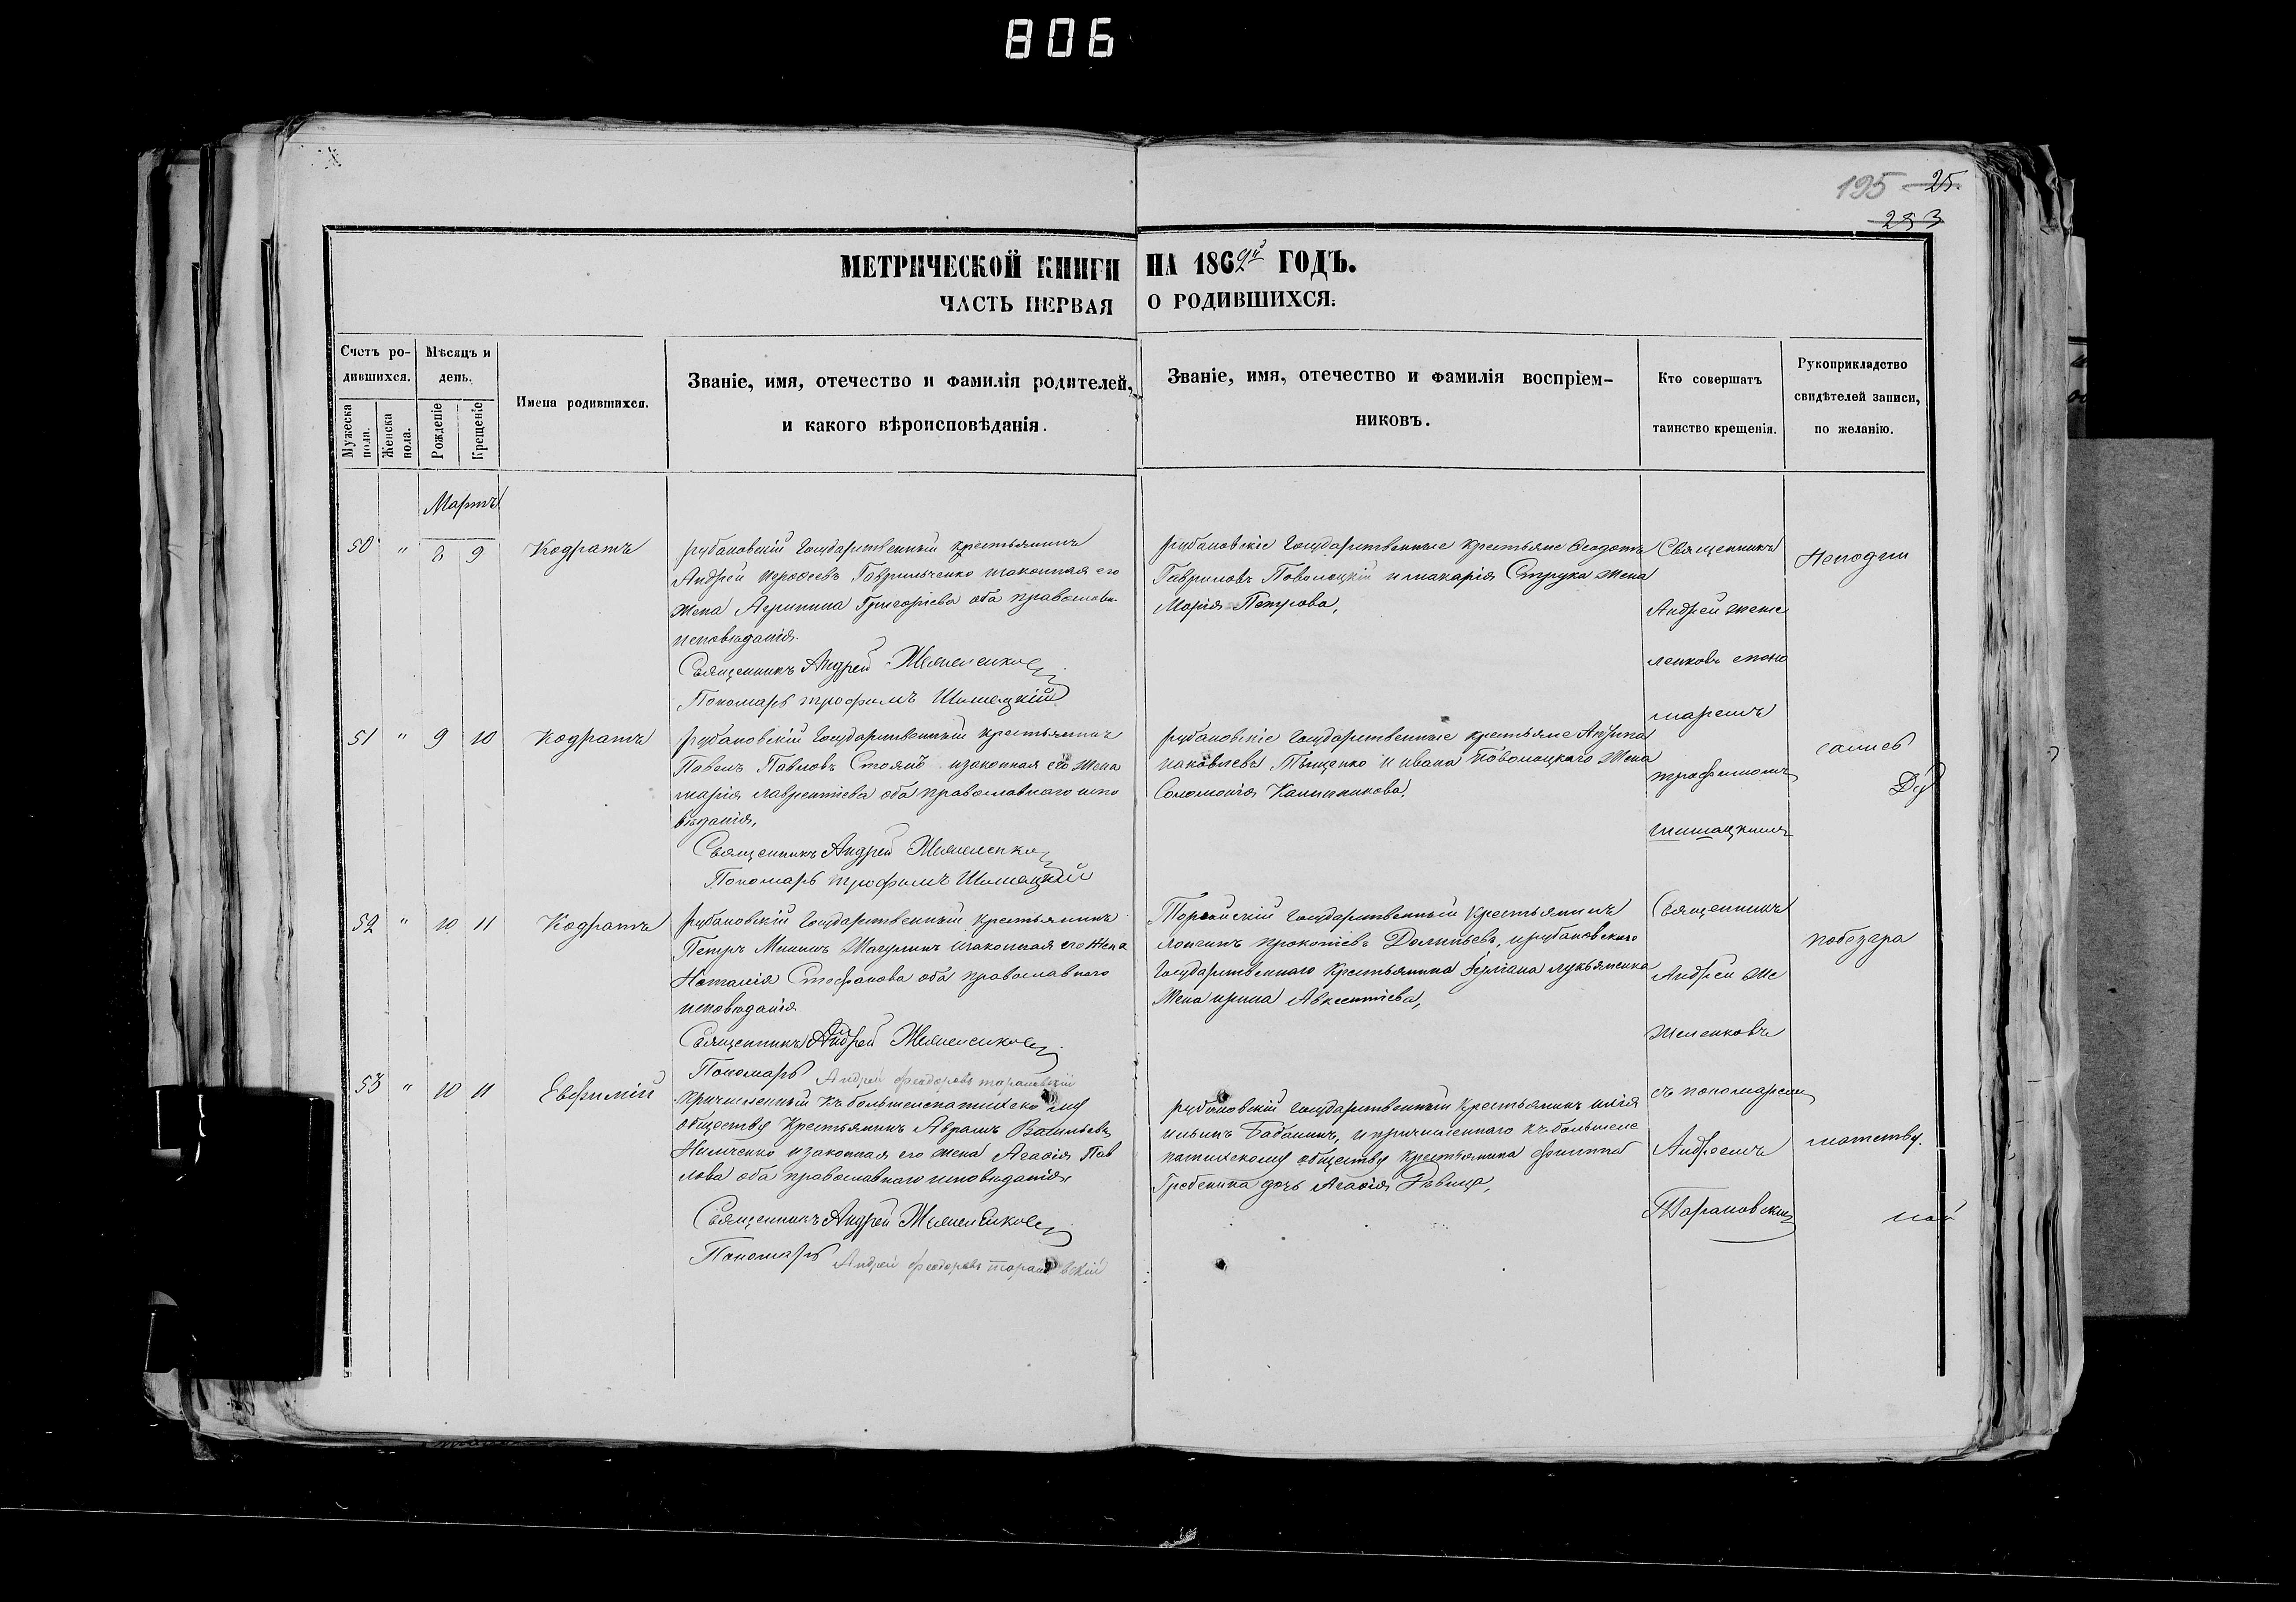 806
195 25.
253
МЕТРИЧЕСКОЙ КНИГИ НА 1862й ГОДЪ.
ЧАСТЬ ПЕРВАЯ О РОДИВШИХСЯ.
Счетъ ро-
дившихся.
Мужеска пола.
Женска пола.
Мѣсяцъ и
день.
Рожденіе
Крещеніе
Имена родившихся.
Званіе, имя, отечество и фамилія родителей,
и какого вѣроисповѣданія.
Званіе, имя, отечество и фамилія воспріем-
никовъ.
Кто совершатъ
таинство крещенія.
Рукоприкладство
свидѣтелей записи,
по желанію.
Мартъ
50 " 8 9 Кодратъ
рубановскій Государственный крестьянинъ
Андрей Гаврильченко изаконная его
жена Агрипина Григоріева оба православн.
исповѣданія.
Священникъ Андрей Жежеленковъ
Пономарь трофимъ Шишацкій
рубановскіе Государственные крестьяне Ѳеодотъ
Гавриловъ Поволоцкій имакарія Струка жена
Марія Петрова,
Священникъ
Андрей жеже
ленковъ спono
маремъ
трофимомъ
шишацкимъ
51 " 9 10 Кодратъ
рубановскій Государственный крестьянинъ
Павелъ Павловъ Стоянъ изаконная его жена
марія лаврентіева оба православнаго испо
вѣданія,
Священникъ Андрей Жежеленковъ
Пономарь трофимъ Шишацкій
рубановскіе Государственные крестьяне
иаковлева Тыщенко и ивана Поволоцкаго жена
Соломонія Калинникова,
52 " 10 11 Кодратъ
рубановскій Государственный крестьянинъ
Петръ Мининъ изаконная его жена
Наталія Стефанова оба православнаго
исповѣданія
Священникъ Андрей Жежеленковъ
Пономарь Андрей феодоровъ тарановскій
Государственный Крестьянинъ
прокопіевъ ирубановскаго
Государственнаго Крестьянина лукьяненка
жена ирина Авксентіева,
Священникъ
Андрей же
желенковъ
съ пономаремъ
Андреемъ
Тарановскимъ
53 " 10 11 Евфимій
причисленный къ
обществу Крестьянинъ Аврамъ Васильевъ
Нимченко изаконная его жена Агафія Пав
лова оба православнаго исповѣданія
Священникъ Андрей Жежеленковъ
Пономарь Андрей феодоровъ тарановскій
рубановскій Государственный Крестьянинъ илія
ильинъ Бабанинъ, ипричисленнаго къ
обществу Крестьянина филиппа
Гребеника дочь Агафія Дѣвица,